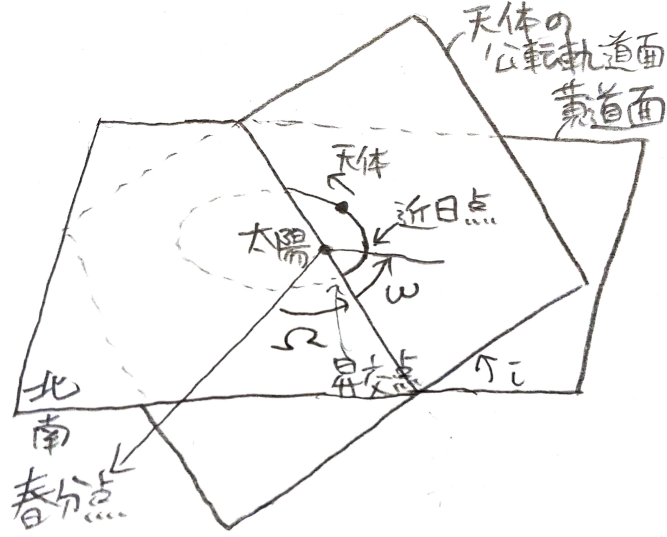 天体の
公転軌道面
黄道面
天体
近日点
太陽
ω
Ω
昇交点
i
北
南
春分点